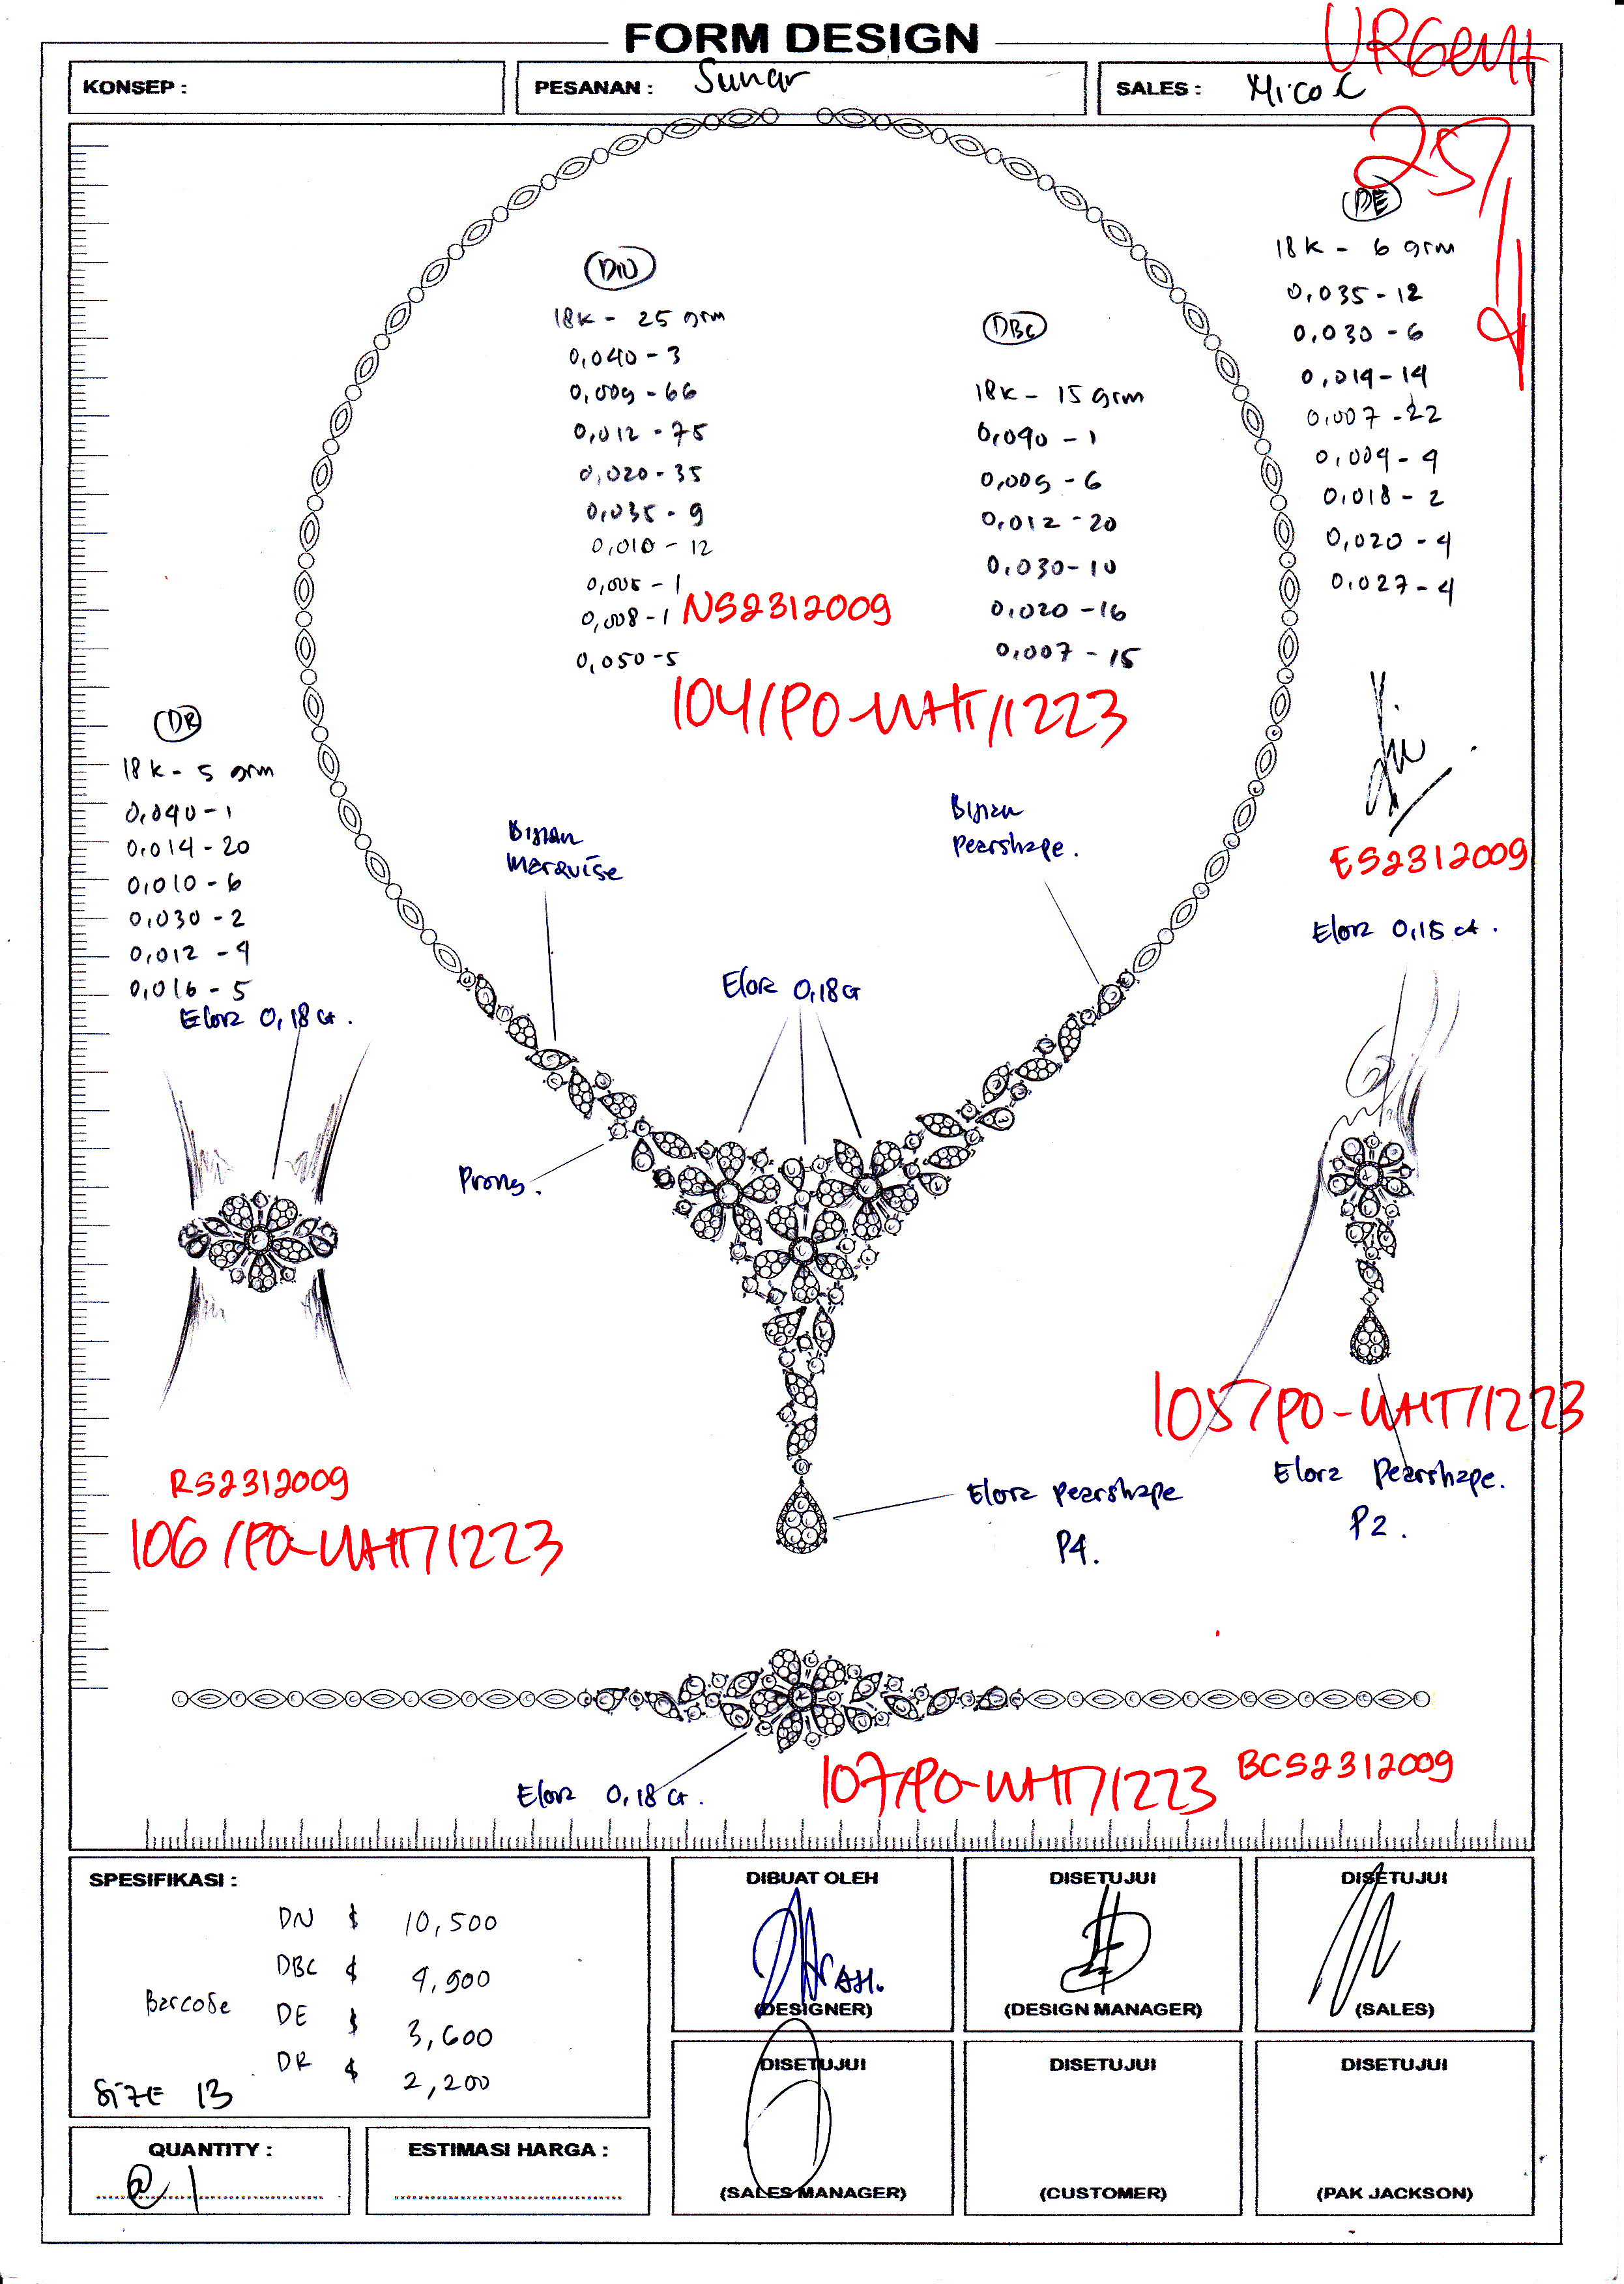 FORM DESIGN
URGENT
KONSEP :
PESANAN : Sunar
SALES : Mico L
25/
DN
18K - 25 grm
0,040 - 3
0,009 - 66
0,012 - 75
0,020 - 35
0,035 - 9
0,010 - 12
0,005 - 1
0,008 - 1
0,050 - 5
NS2312009
104/PO-WHT/1223
DBC
18K - 15 grm
0,090 - 1
0,009 - 6
0,012 - 20
0,030 - 10
0,020 - 16
0,007 - 15
DE
18K - 6 grm
0,035 - 12
0,030 - 6
0,014 - 14
0,007 - 22
0,009 - 4
0,018 - 2
0,020 - 4
0,027 - 4
ES2312009
Elora 0,18 ct.
DR
18K - 5 grm
0,090 - 1
0,014 - 20
0,010 - 6
0,030 - 2
0,012 - 4
0,016 - 5
Elora 0,18 ct.
Bijian
Marquise
Bijian
Pearshape.
Elora 0,18 ct
Prong.
RS2312009
106/PO-WHT/1223
105/PO-WHT/1223
Elora Pearshape
P4.
Elora Pearshape.
P2.
Elora 0,18 ct.
107/PO-WHT/1223
BCS2312009
SPESIFIKASI :
DN $ 10,500
DBC $ 4,900
Barcode
DE $ 3,600
DR $ 2,200
SIZE 13
QUANTITY :
@ 1
ESTIMASI HARGA :
DIBUAT OLEH
(DESIGNER)
DISETUJUI
(DESIGN MANAGER)
DISETUJUI
(SALES)
DISETUJUI
(SALES MANAGER)
DISETUJUI
(CUSTOMER)
DISETUJUI
(PAK JACKSON)